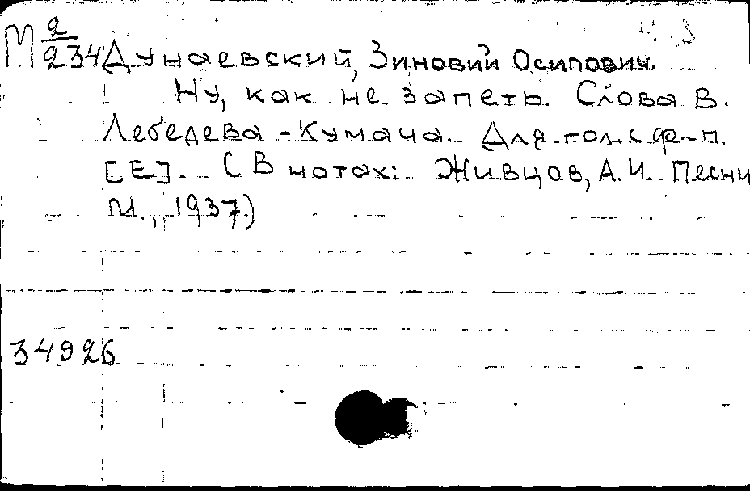 М 2/234 Дунаевский, Зиновий Осипович.
Ну, как не запеть. Слова В.
Лебедева-Кумача. Для гол. с ф-п.
[Е]. (В нотах: Живцов, А.И. Песни
М., 1937.)
34926